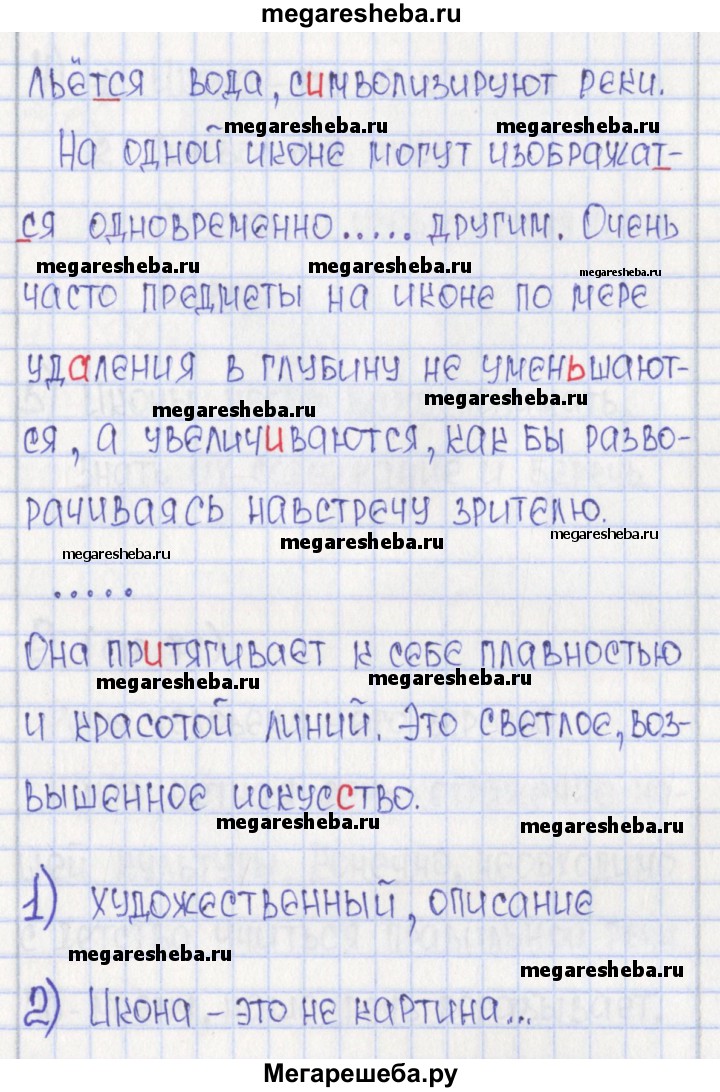 megaresheba.ru
льётся вода, символизируют реки.
megaresheba.ru megaresheba.ru
На одной иконе могут изображат-
ся одновременно..... другим. Очень
megaresheba.ru megaresheba.ru megaresheba.ru
часто предметы на иконе по мере
удаления в глубину не уменьшают-
megaresheba.ru megaresheba.ru
ся, а увеличиваются, как бы разво-
рачиваясь навстречу зрителю.
megaresheba.ru megaresheba.ru megaresheba.ru
.....
Она притягивает к себе плавностью
megaresheba.ru megaresheba.ru
и красотой линий. Это светлое, воз-
вышенное искусство.
megaresheba.ru megaresheba.ru
1) художественный, описание
megaresheba.ru megaresheba.ru
2) Икона – это не картина...
Мегарешеба.ру